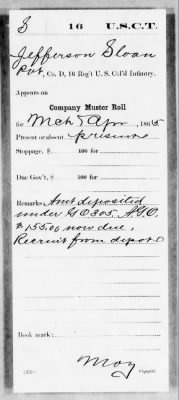 S 16 U.S.C.T.
Jefferson Sloan
Pvt, Co. D, 16 Reg't U. S. Col'd Infantry.
Appears on
Company Muster Roll
for Mch & Apr, 1865
Present or absent present
Stoppage, $ 100 for
Due Gov't, $ 100 for
Remarks: Amt deposited
under G O 305 A.G.O.
$155.00 now due.
Recruit from depot
Book mark:
Copyist.